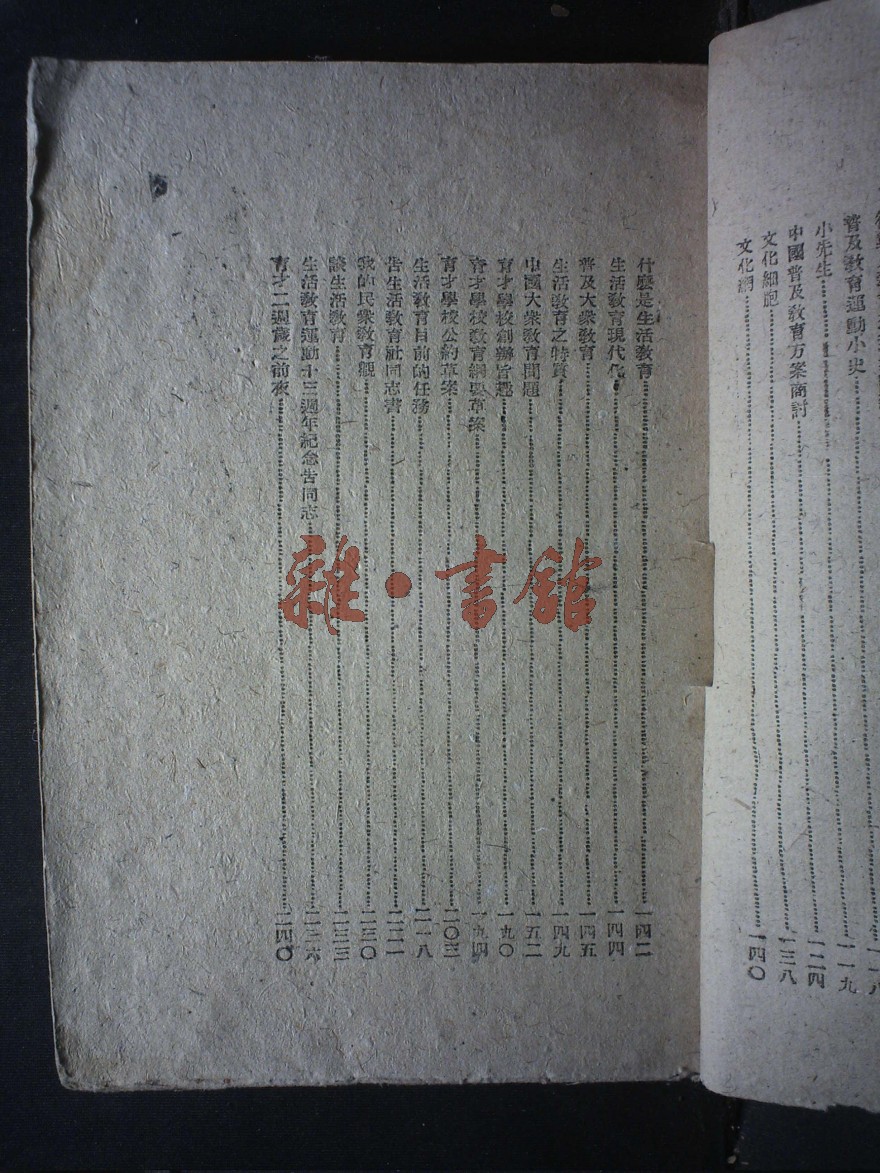 普及教育運動小史……一一九
小先生……一二四
中國普及教育方案商討……一三八
文化細胞
文化網……一四〇
什麼是生活教育……一四二
生活教育現代化……一四四
普及大衆教育……一四五
生活教育之特質……一四九
中國大衆教育問題……一五二
育才學校創辦旨趣……一九〇
育才學校教育綱要草案……一九四
育才學校公約草案……二〇三
生活教育目前的任務……二一八
告生活教育社同志書……二二一
我的民衆教育觀……二三〇
談生活教育……二三三
生活教育運動十三週年紀念告同志……二三六
育才二週歲之前夜……二四〇
雜·書館